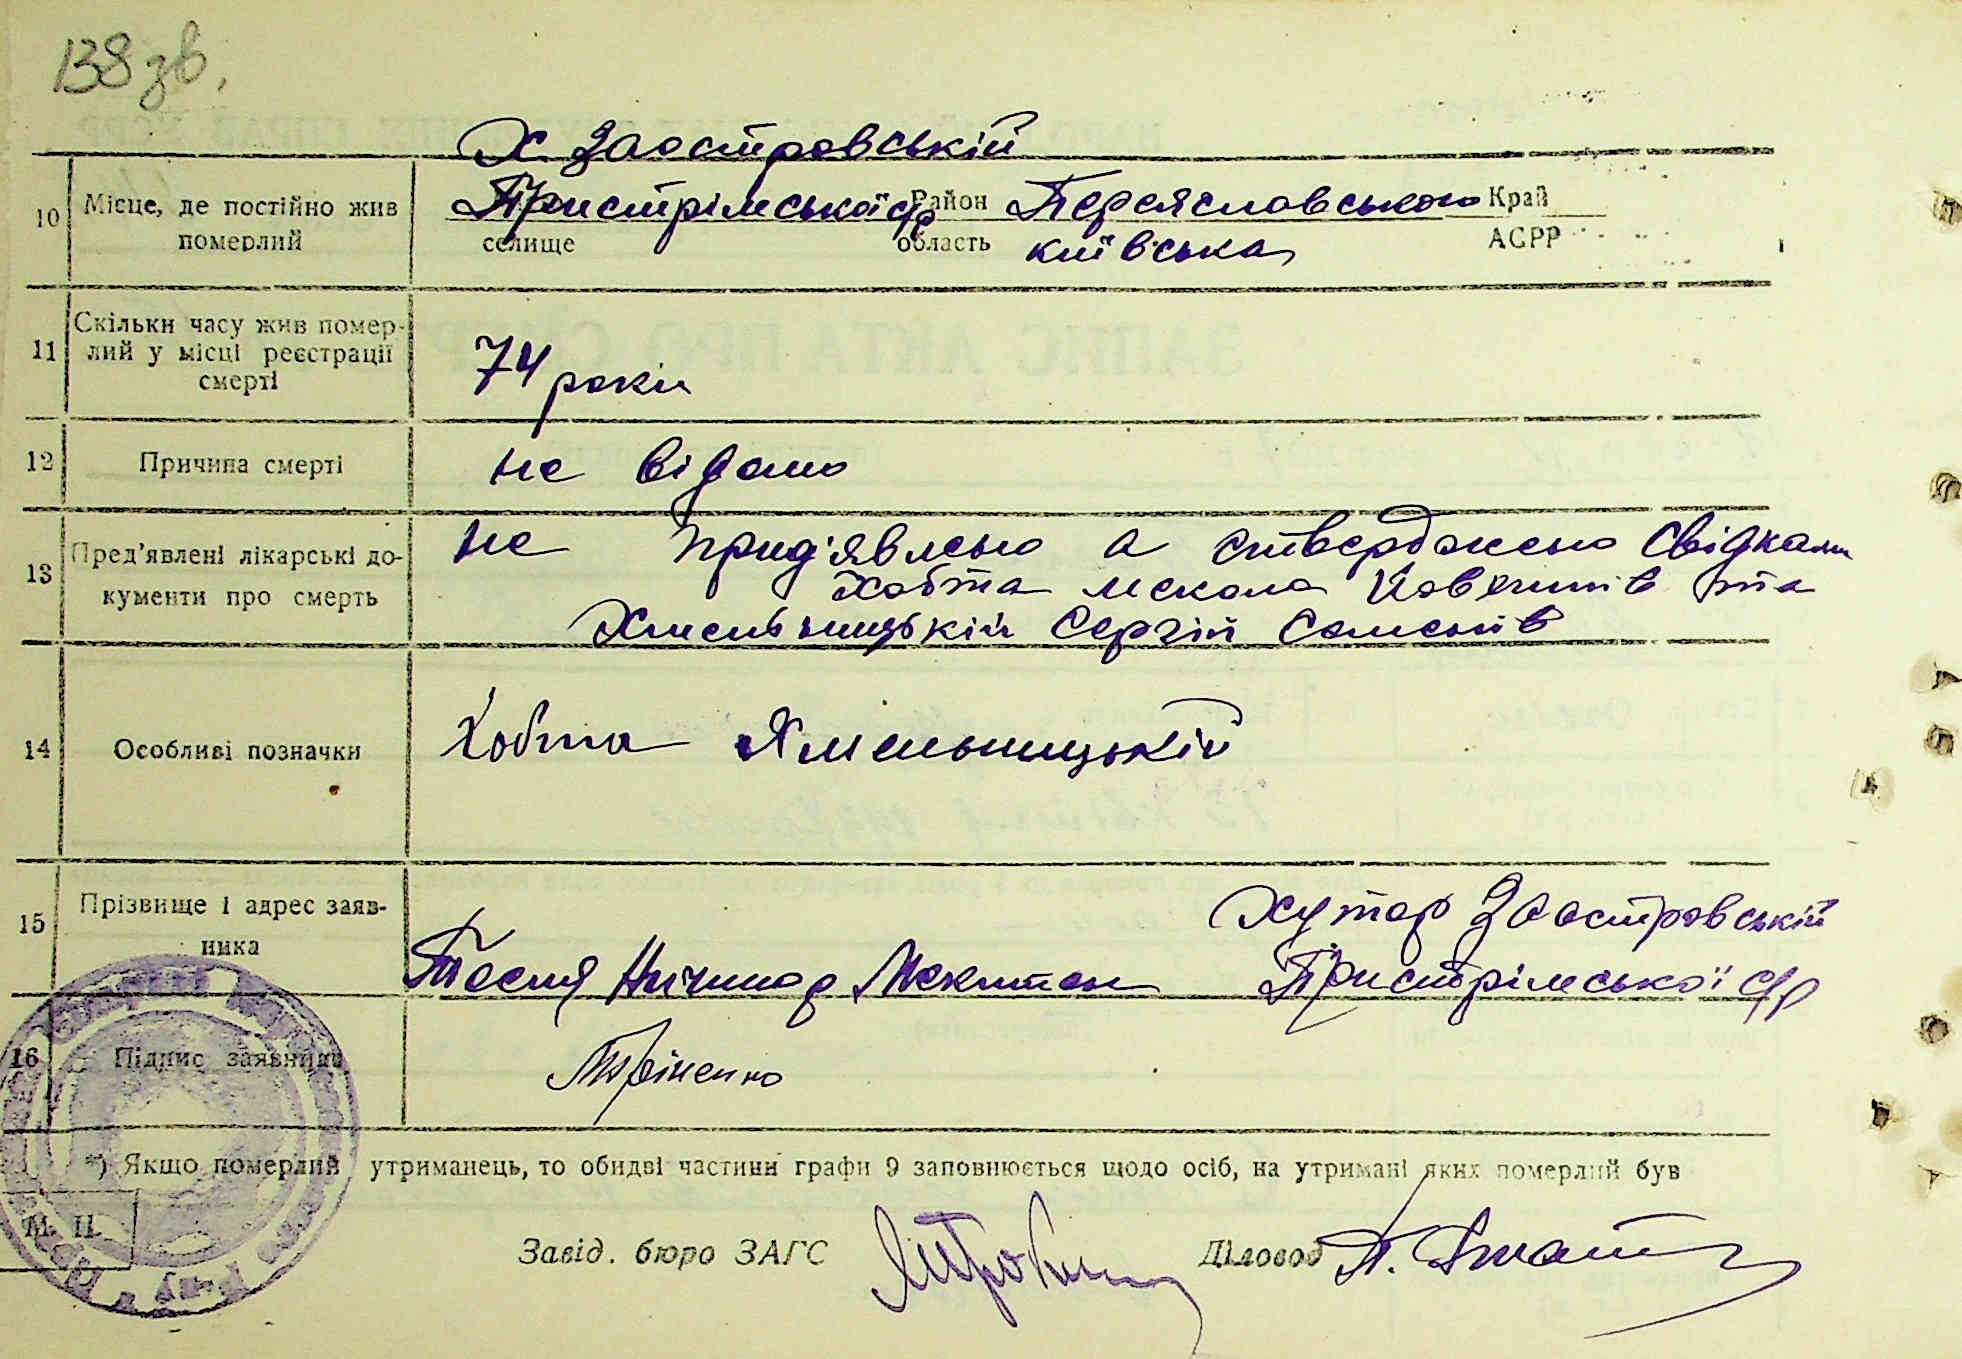 138 зв.
Х. Заостровській
10 Місце, де постійно жив померлий
Пристрімської с/р Район Переяславського Край
селище область київська АСРР
11 Скільки часу жив померлий у місці реєстрації смерті
74 роки
12 Причина смерті
не відомо
13 Пред'явлені лікарські документи про смерть
не прид'явлено а ствержжено свідками
Хобта Микола та
Хмельницькій Сергій Семенів
14 Особливі позначки
Хобта Хмельницькій
15 Прізвище і адрес заявника
Хутор Заостровській
Тесля Ничипор Пристрімської с/р
16 Підпис заявника
*) Якщо померлий утриманець, то обидві частини графи 9 заповнюється щодо осіб, на утримані яких померлий був
М. П.
Завід. бюро ЗАГС Діловод